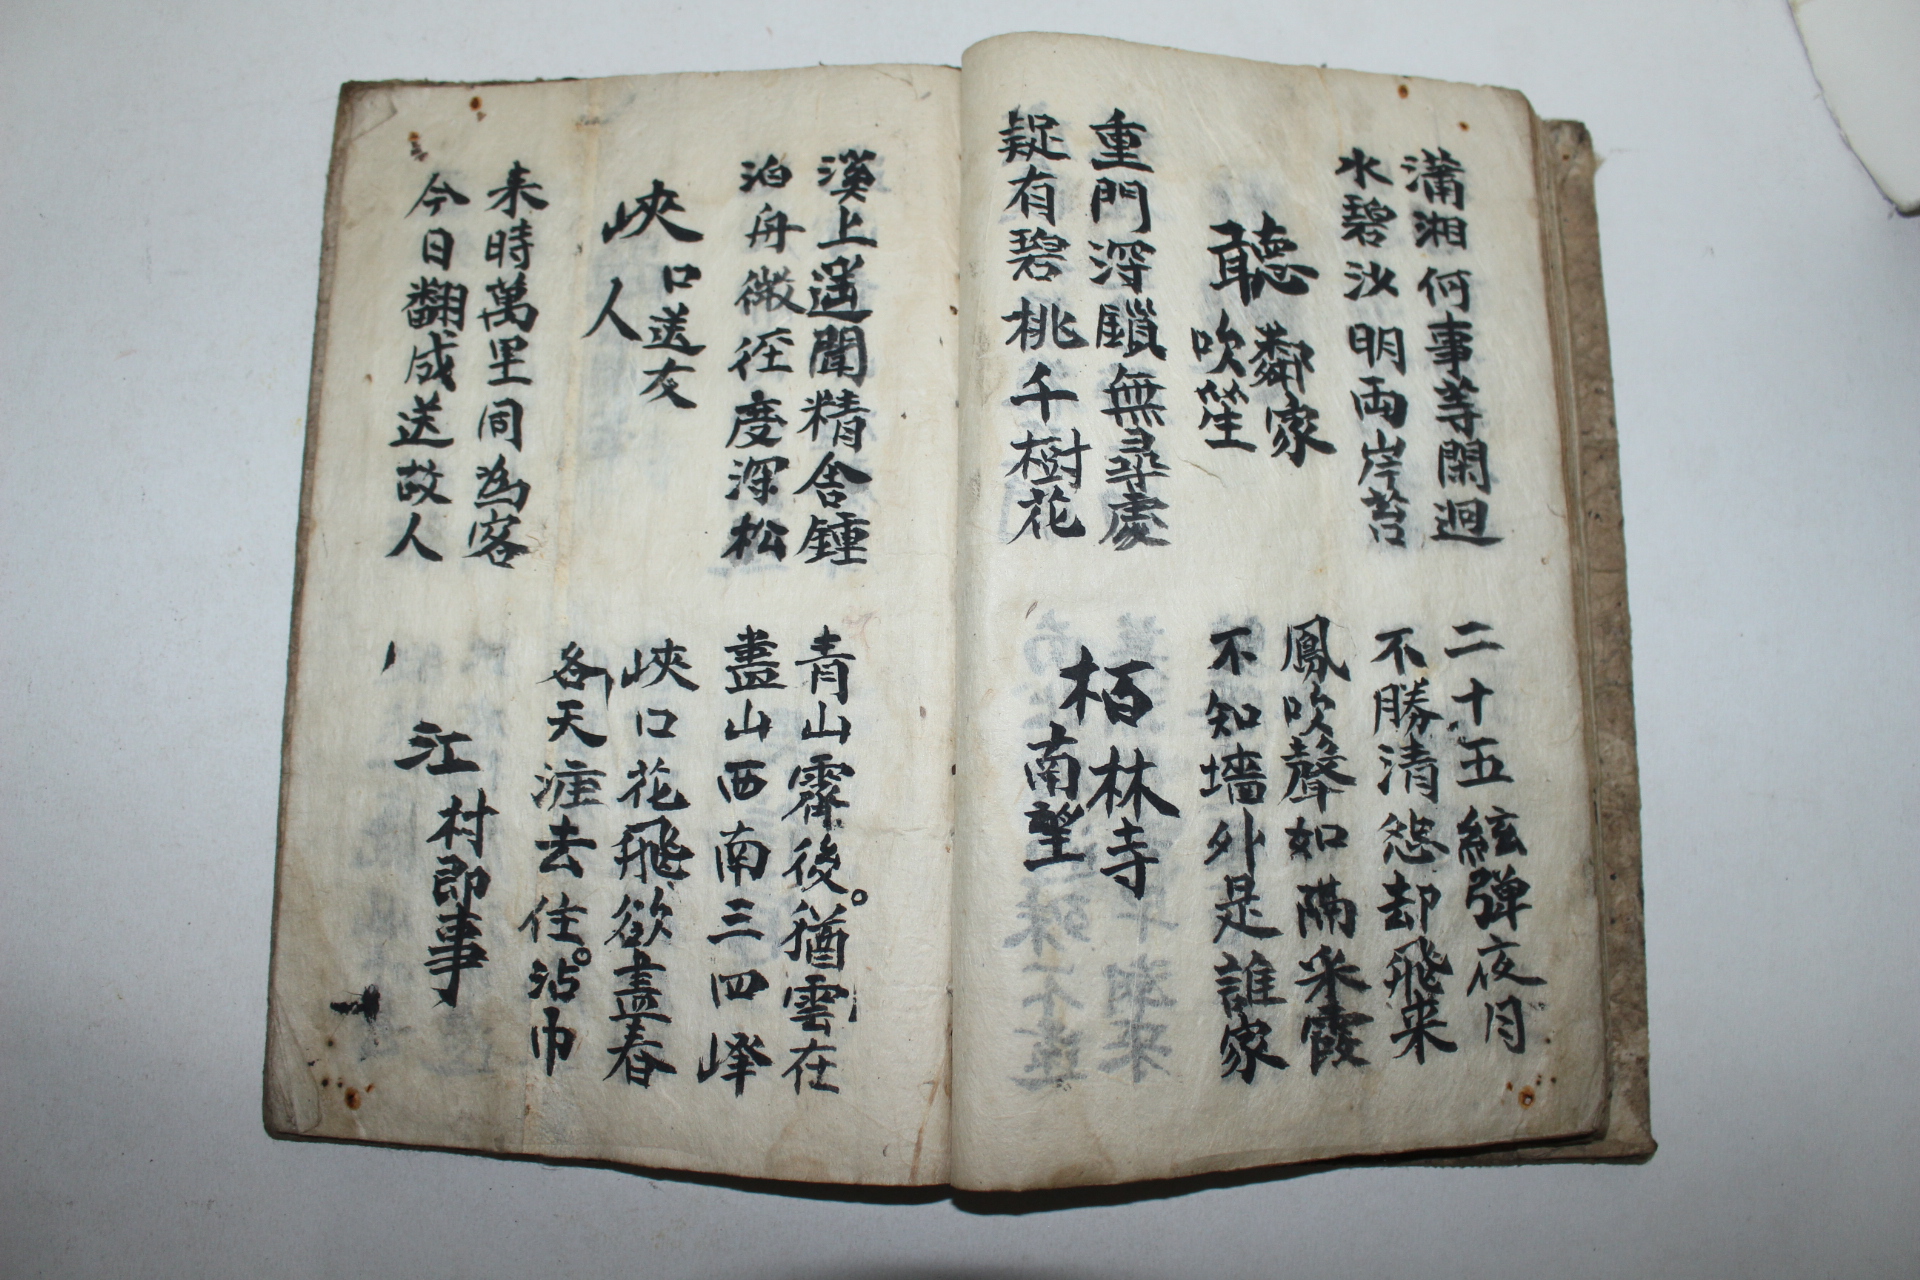 瀟湘何事等閑迴
水碧沙明両岸苔
二十五絃彈夜月
不勝清怨却飛来
聽鄰家
吹笙
鳳吹聲如隔采霞
不知墻外是誰家
重門深鎖無尋處
疑有碧桃千樹花
栢林寺
南望
溪上遥聞精舍鍾
泊舟微徑度深松
青山霽後猶雲在
盡山西南三四峰
峽口送友
人
峽口花飛欲盡春
各天涯去住沾巾
来時萬里同為客
今日翻成送故人
江村即事